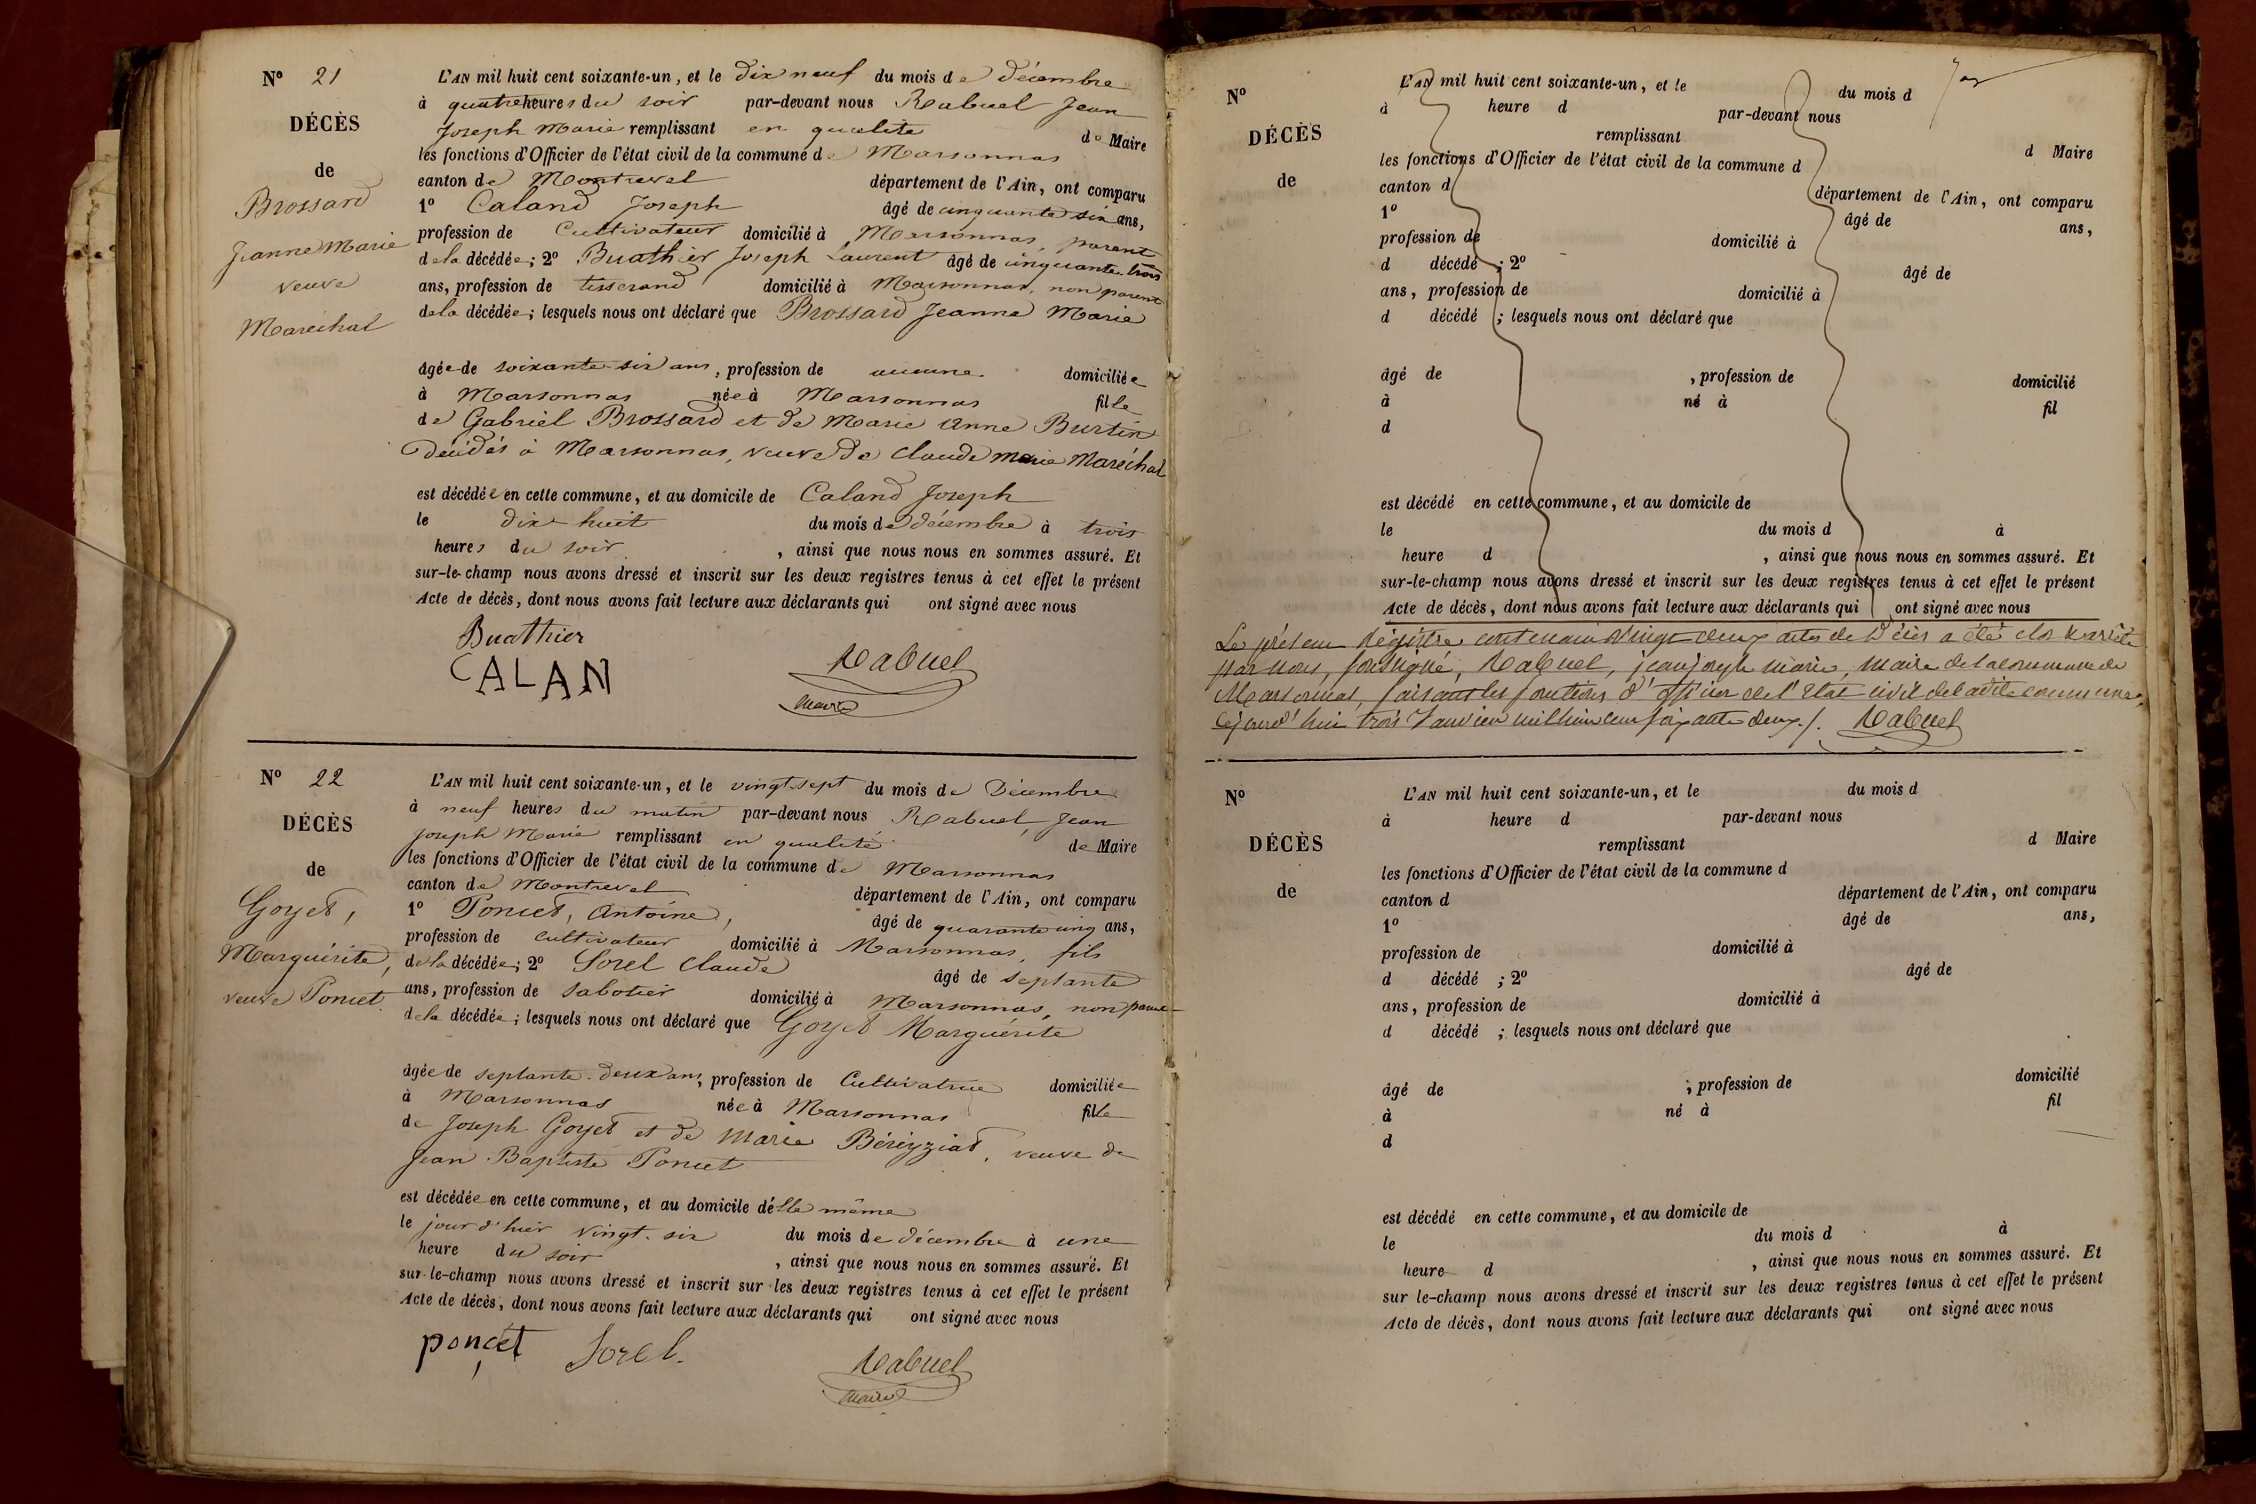 N° 21
DÉCÈS
de
Brossard
Jeanne Marie
veuve
Maréchal
L'AN mil huit cent soixante-un, et le dix neuf du mois de décembre
à quatre heures du soir par-devant nous Rabuel Jean
Joseph Marie remplissant en qualité de Maire
les fonctions d'Officier de l'état civil de la commune de Marsonnas
canton de Montrevel département de l'Ain, ont comparu
1° Caland Joseph âgé de cinquante six ans,
profession de Cultivateur domicilié à Marsonnas, parent
de la décédée; 2° Buathier Joseph Laurent âgé de cinquante trois
ans, profession de tisserand domicilié à Marsonnas, non parent
de la décédée; lesquels nous ont déclaré que Brossard Jeanne Marie
âgée de soixante-six ans, profession de aucune domiciliée
à Marsonnas née à Marsonnas fille
de Gabriel Brossard et de Marie Anne Burtin
décédés à Marsonnas, veuve de Claude Marie Maréchal
est décédée en cette commune, et au domicile de Caland Joseph
le dix-huit du mois de décembre à trois
heures du soir, ainsi que nous nous en sommes assuré. Et
sur-le-champ nous avons dressé et inscrit sur les deux registres tenus à cet effet le présent
Acte de décès, dont nous avons fait lecture aux déclarants qui ont signé avec nous
Buathier
CALAN
Rabuel
maire
N° 22
DÉCÈS
de
Goyet,
Marguérite,
veuve Poncet.
L'AN mil huit cent soixante-un, et le vingt-sept du mois de Décembre
à neuf heures du matin par-devant nous Rabuel, Jean
Joseph Marie remplissant en qualité de Maire
les fonctions d'Officier de l'état civil de la commune de Marsonnas
canton de Montrevel département de l'Ain, ont comparu
1° Poncet, Antoine, âgé de quarante cinq ans,
profession de cultivateur domicilié à Marsonnas, fils
de la décédée; 2° Sorel Claude âgé de septante
ans, profession de sabotier domicilié à Marsonnas, non parent
de la décédée; lesquels nous ont déclaré que Goyet Marguérite
âgée de septante-deux ans, profession de Cultivatrice domiciliée
à Marsonnas née à Marsonnas fille
de Joseph Goyet et de Marie Béréyziat, veuve de
Jean Baptiste Poncet
est décédée en cette commune, et au domicile d'elle même
le jour d'hier vingt-six du mois de décembre à une
heure du soir, ainsi que nous nous en sommes assuré. Et
sur-le-champ nous avons dressé et inscrit sur les deux registres tenus à cet effet le présent
Acte de décès, dont nous avons fait lecture aux déclarants qui ont signé avec nous
poncet Sorel.
Rabuel
maire
N°
DÉCÈS
de
L'AN mil huit cent soixante-un, et le du mois d
à heure d par-devant nous
remplissant d Maire
les fonctions d'Officier de l'état civil de la commune d
canton d département de l'Ain, ont comparu
1° âgé de ans,
profession de domicilié à
d décédé ; 2° âgé de
ans, profession de domicilié à
d décédé ; lesquels nous ont déclaré que
âgé de , profession de domicilié
à né à fil
d
est décédé en cette commune, et au domicile de
le du mois d à
heure d , ainsi que nous nous en sommes assuré. Et
sur-le-champ nous avons dressé et inscrit sur les deux registres tenus à cet effet le présent
Acte de décès, dont nous avons fait lecture aux déclarants qui ont signé avec nous
Le présent Régistre contenant vingt deux actes de Décès a été clos & arrêté
par nous, soussigné, Rabuel, jean joseph marie, Maire de la commune de
Marsonnas, faisant les fonctions d'officier de l'Etat civil de ladite commune,
cejourd'hui trois Janvier mil huit cent soixante deux./. Rabuel
N°
DÉCÈS
de
L'AN mil huit cent soixante-un, et le du mois d
à heure d par-devant nous
remplissant d Maire
les fonctions d'Officier de l'état civil de la commune d
canton d département de l'Ain, ont comparu
1° âgé de ans,
profession de domicilié à
d décédé ; 2° âgé de
ans, profession de domicilié à
d décédé ; lesquels nous ont déclaré que
âgé de ; profession de domicilié
à né à fil
d
est décédé en cette commune, et au domicile de
le du mois d à
heure d , ainsi que nous nous en sommes assuré. Et
sur le-champ nous avons dressé et inscrit sur les deux registres tenus à cet effet le présent
Acte de décès, dont nous avons fait lecture aux déclarants qui ont signé avec nous